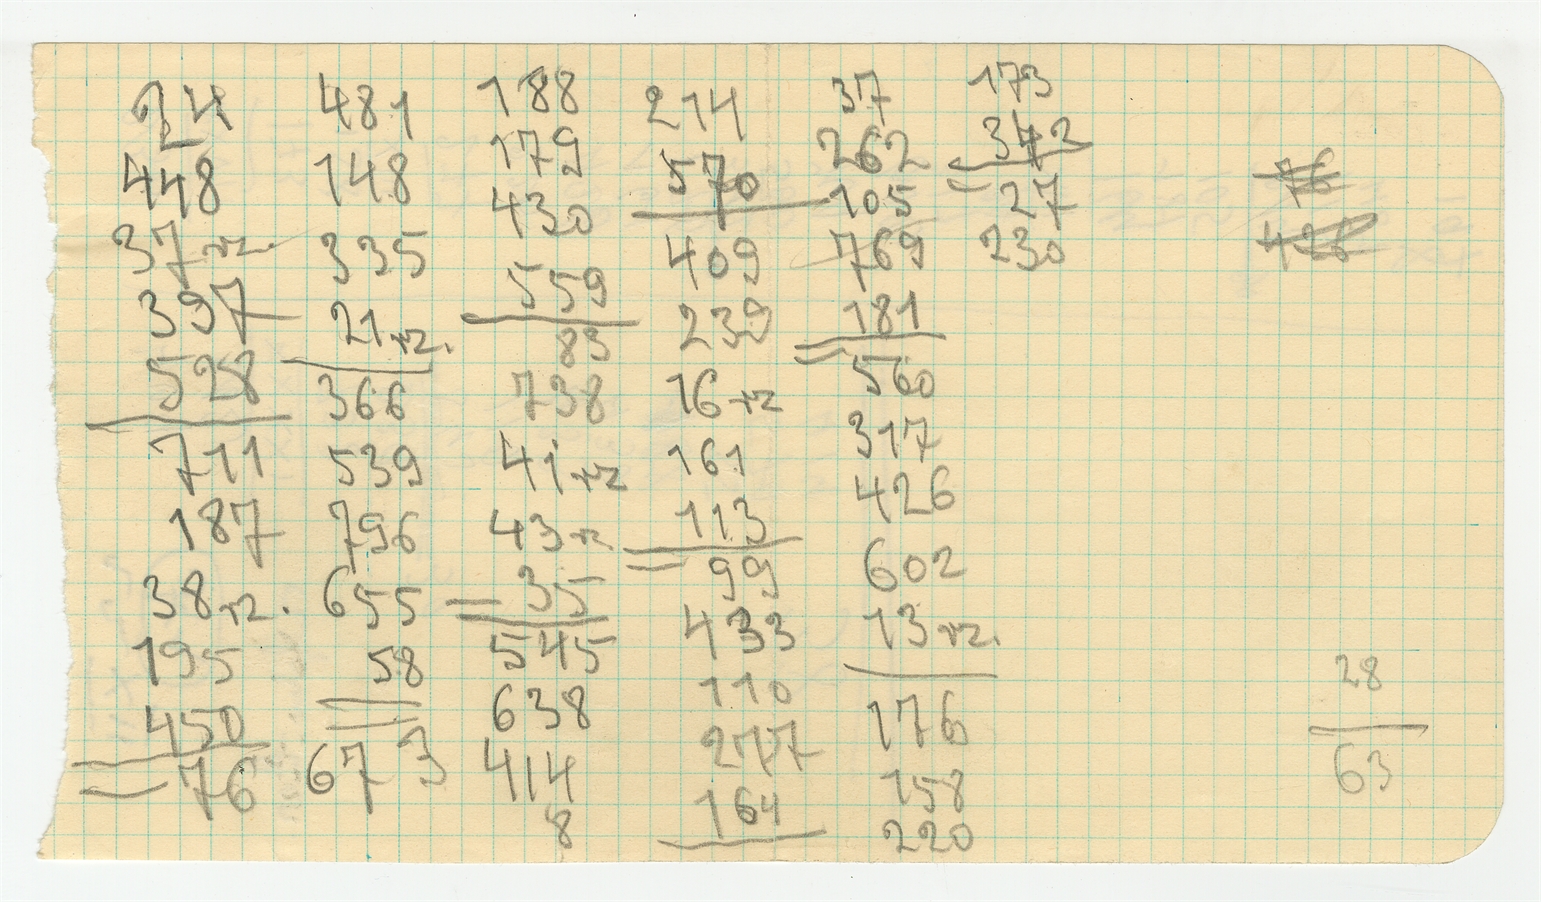 24
448
37 чг.
397
528
711
187
38 чг.
195
450
76
481
148
335
21 чг.
366
539
796
655
58
673
188
179
430
559
83
738
41 чг
43 чг
35
545
638
414
8
214
570
409
239
16 чг
161
113
99
433
110
277
164
37
262
105
769
181
560
317
426
602
13 чг.
176
158
220
173
342
27
230
76
426
28
63